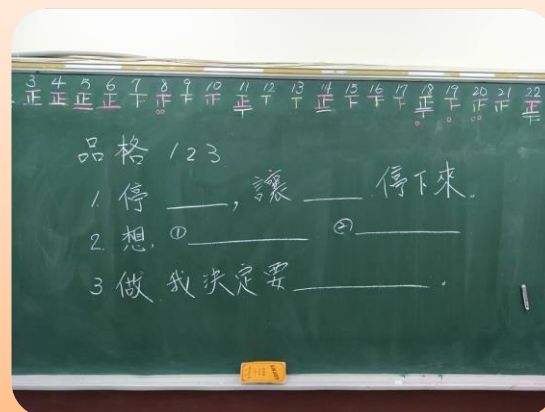 3 4 5 6 7 8 9 10 11 12 13 14 15 16 17 18 19 20 21 22
正 正 正 正 下 正 下 正 正 下 下 正 下 下 下 正 下 正 下 正
品格 123
1. 停 ____, 讓 ____ 停下來.
2. 想. ① ____ ② ____
3 做 我決定要 ____ .